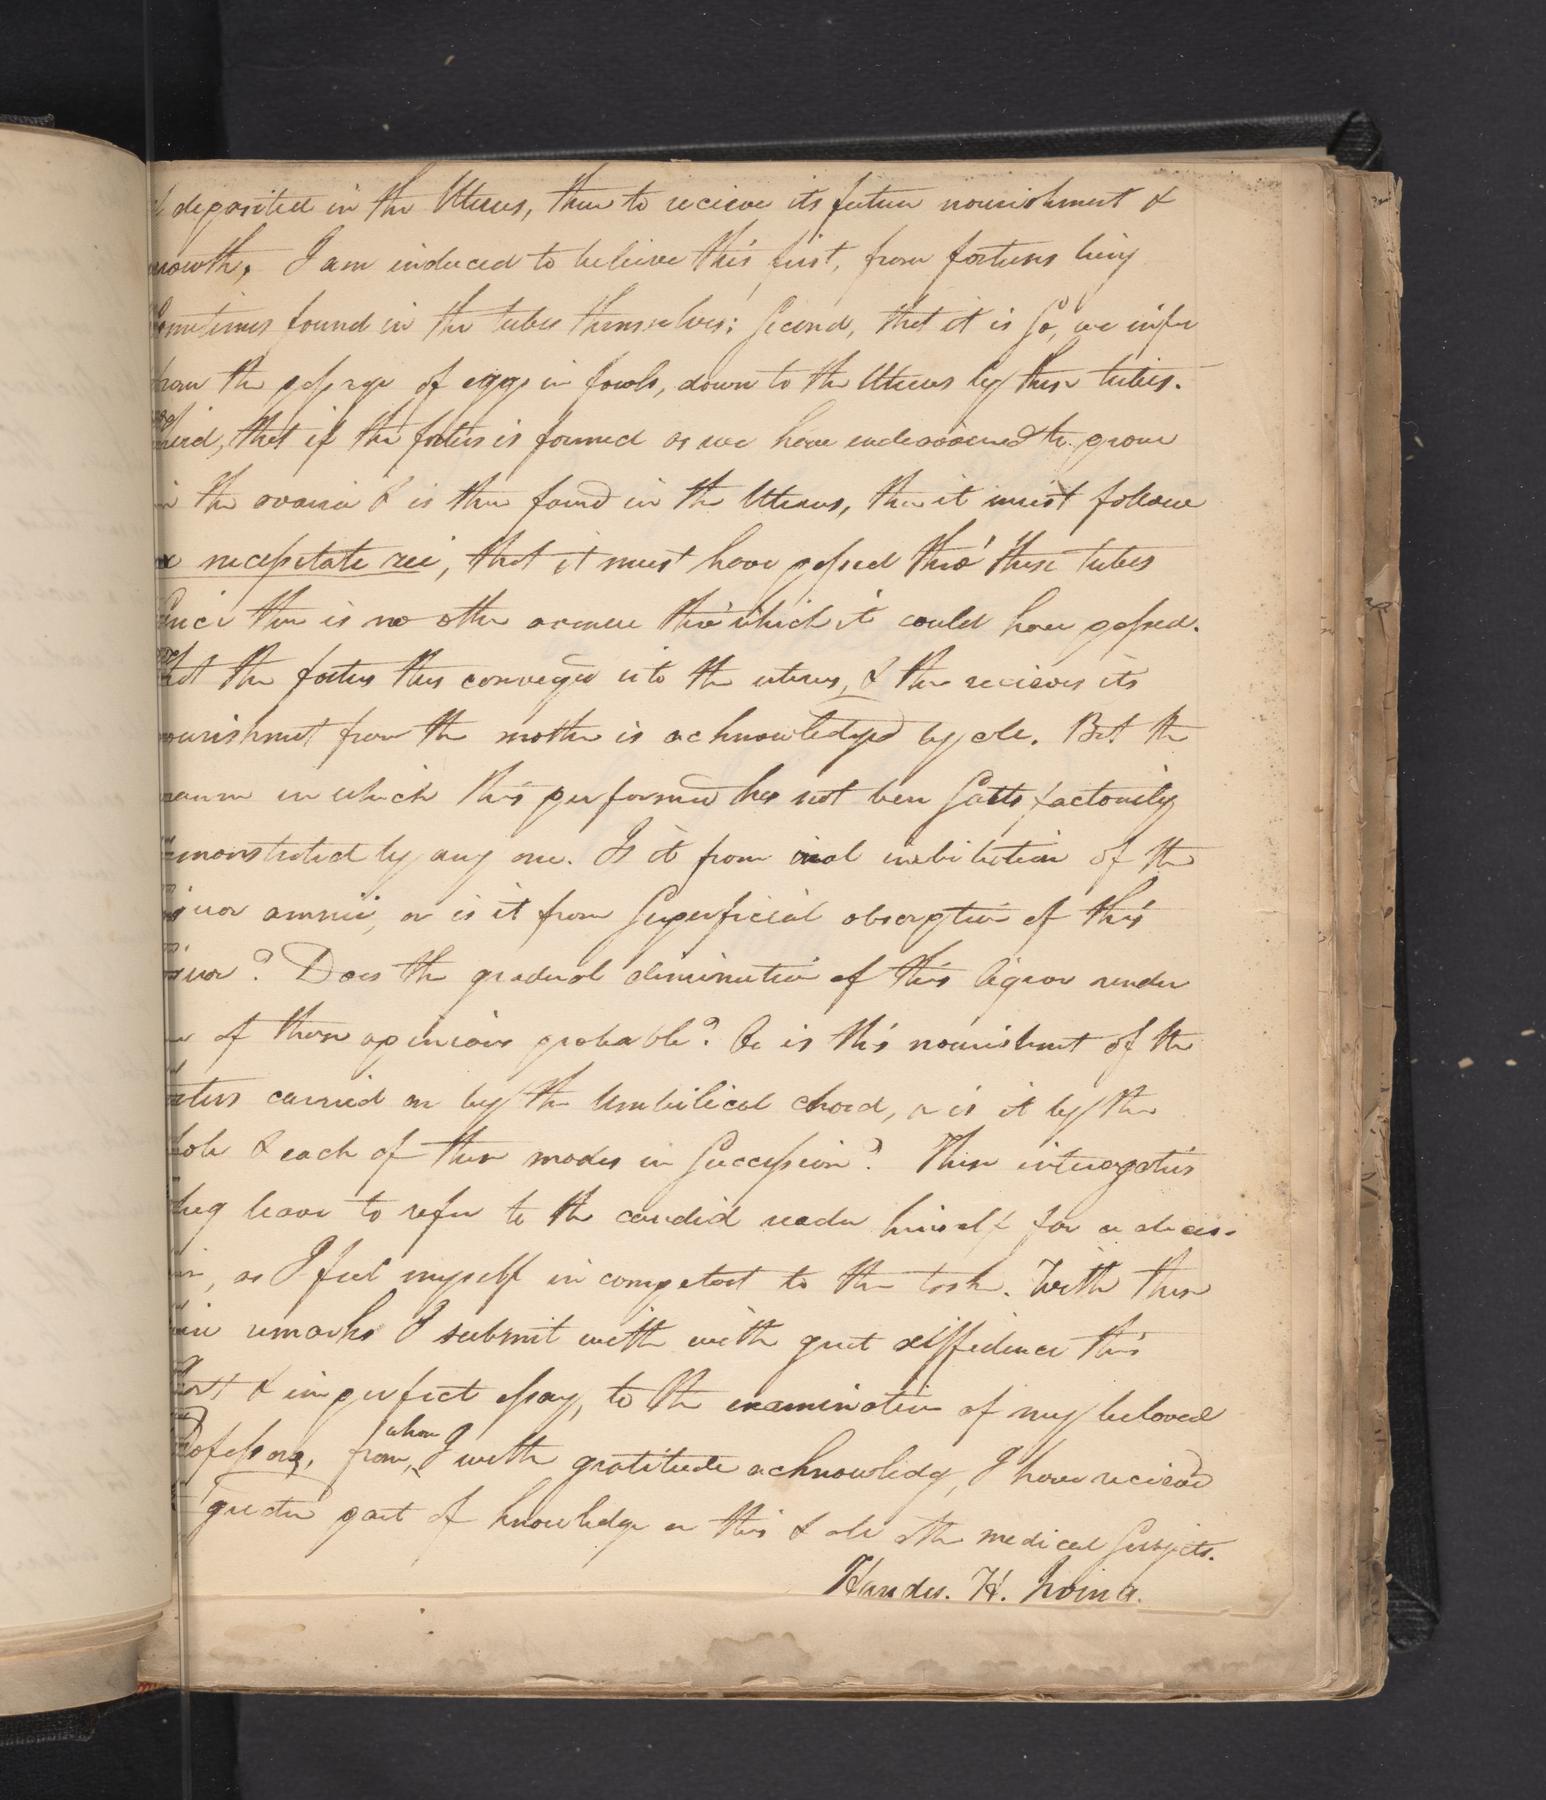 & deposited in the Uterus, there to recieve its future nourishment &
growth. I am induced to believe this, first, from foetuses being
Sometimes found in the tubes themselves; Second, that it is So, we infer
from the passage of eggs in fowls, down to the Uterus by these tubes.
Third, that if the foetus is formed as we have endeavoured to prove
in the ovaria & is then found in the Uterus, then it must follow
ex necessitate rei, that it must have passed thro' these tubes
Since there is no other avenue thro' which it could have passed.
That the foetus thus conveyed into the uterus, & there recieves its
nourishment from the mother is acknowledged by all. But the
manner in which this performed has not been Satisfactorily
demonstrated by any one. Is it from oral imbibition of the
liquor amnii, or is it from Superficial absorption of this
liquor? Does the gradual diminution of this liquor render
of these opinions probable? Or is this nourishment of the
foetus carried on by the Umbilical chord, or is it by the
whole & each of these modes in Succession? These interogatives
beg leave to refer to the candid reader himself for a decis-
ion, as I feel myself incompetent to the task. With these
remarks I submit with with great diffidence this
short & imperfect essay, to the examination of my beloved
Professors, from whom I with gratitude acknowledg, I have recieved
greater part of knowledge on this & all other medical Subjects.
Handes. H. Irvine.